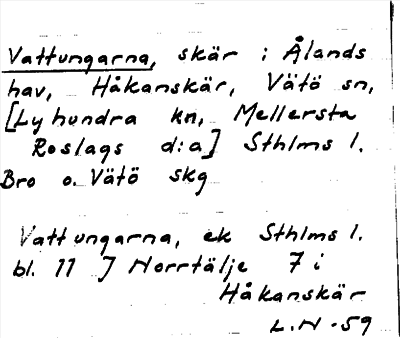 Vattungarna, skär i Ålands
hav, Håkanskär, Vätö sn,
[Lyhundra kn, Mellersta
Roslags d:a] Sthlms l.
Bro o. Vätö skg
Vattungarna, ek Sthlms l.
bl. 11 J Norrtälje 7 i
Håkanskär
L.H -59